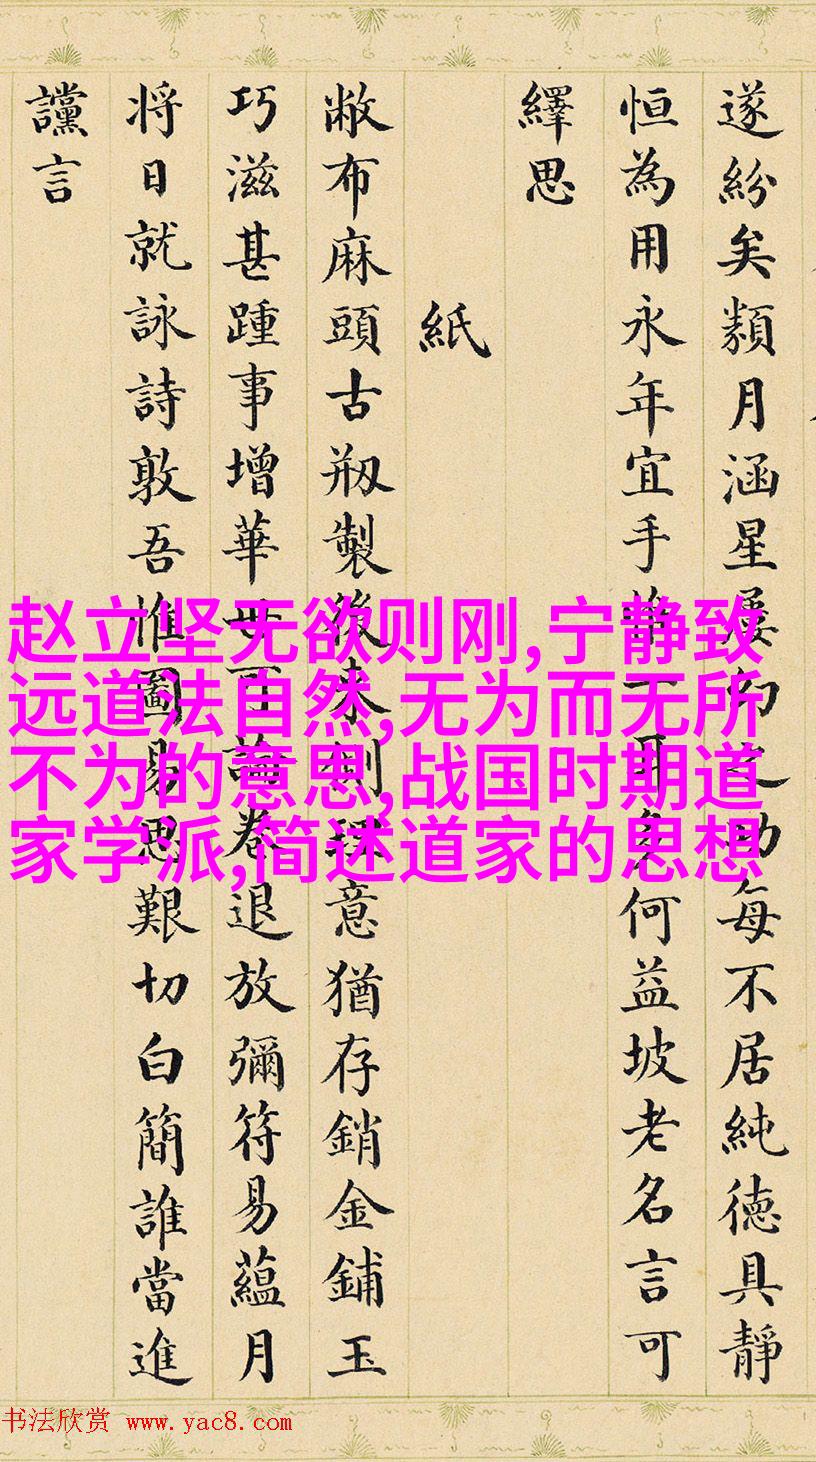 遂紛矣類月涵星屡向之助每不居純德具靜
恒為用永年宜手静一耳多何益坡老名言可
繹思
紙
敝布麻頭古剏製後来側理意猶存銷金鋪玉
巧滋甚踵事增華毋可論卷退放彌符易蘊月
将日就詠詩敦吾惟圖易思艱切白簡誰當進
讜言
赵立坚无欲则刚,宁静致
远道法自然,无为而无所
不为的意思,战国时期道
家学派,简述道家的思想
书法欣赏 www.yac8.com